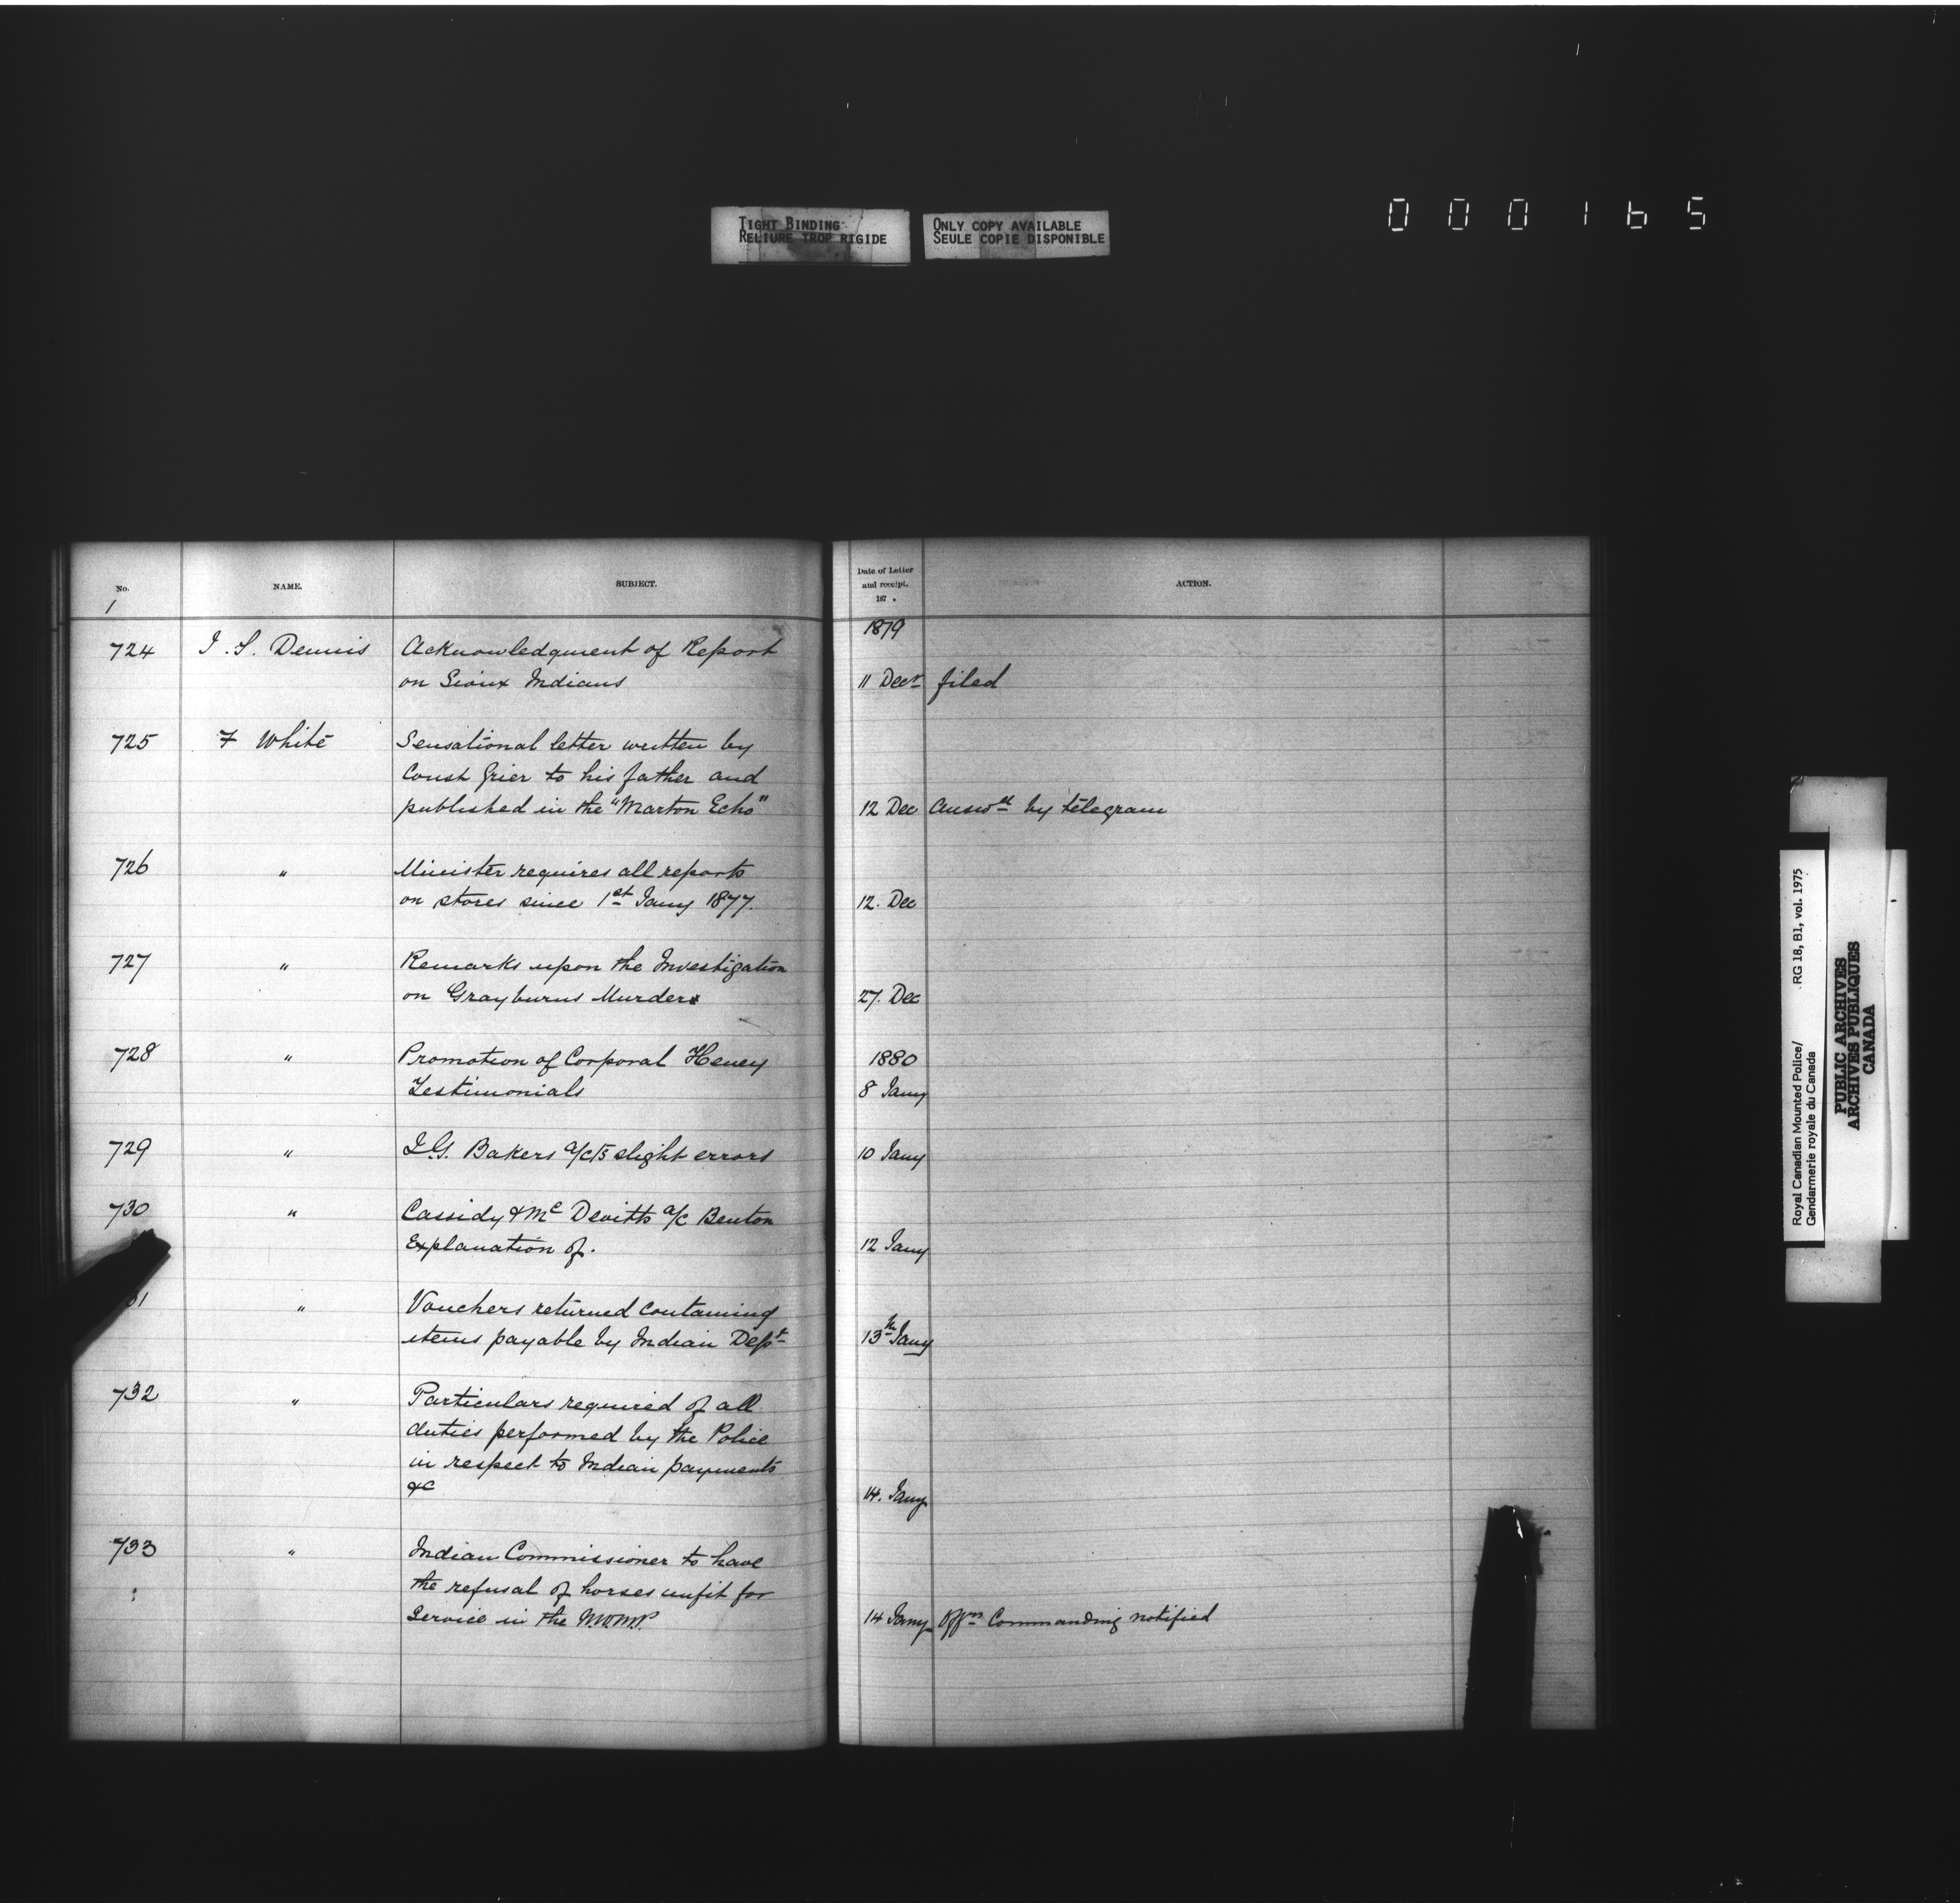 TIGHT BINDING
RELIURE TROP RIGIDE
ONLY COPY AVAILABLE
SEULE COPIE DISPONIBLE
000165
No. NAME. SUBJECT. Date of Letter and receipt. 187 . ACTION.
1
1879
724 J. S. Dennis Acknowledgment of Report
on Sioux Indians 11 Decr filed
725 F White Sensational letter written by
Const Grier to his father and
published in the "Marton Echo" 12 Dec Answd by telegram
726 " Minister requires all reports
on stores since 1st Jany 1877. 12. Dec
727 " Remarks upon the Investigation
on Grayburns Murder 27. Dec
728 " Promotion of Corporal Heney 1880
Testimonials 8 Jany
729 " I.G. Bakers a/c/s slight errors 10 Jany
730 " Cassidy & Mc Devitts a/c Benton
Explanation of. 12 Jany
31 " Vouchers returned containing
items payable by Indian Dept 13th Jany
732 " Particulars required of all
duties performed by the Police
in respect to Indian payments
&c 14. Jany
733 " Indian Commissioner to have
the refusal of horses unfit for
Service in the N.W.M.P. 14 Jany Offrs Commanding notified
Royal Canadian Mounted Police/ RG 18, B1, vol. 1975
Gendarmerie royale du Canada
PUBLIC ARCHIVES
ARCHIVES PUBLIQUES
CANADA